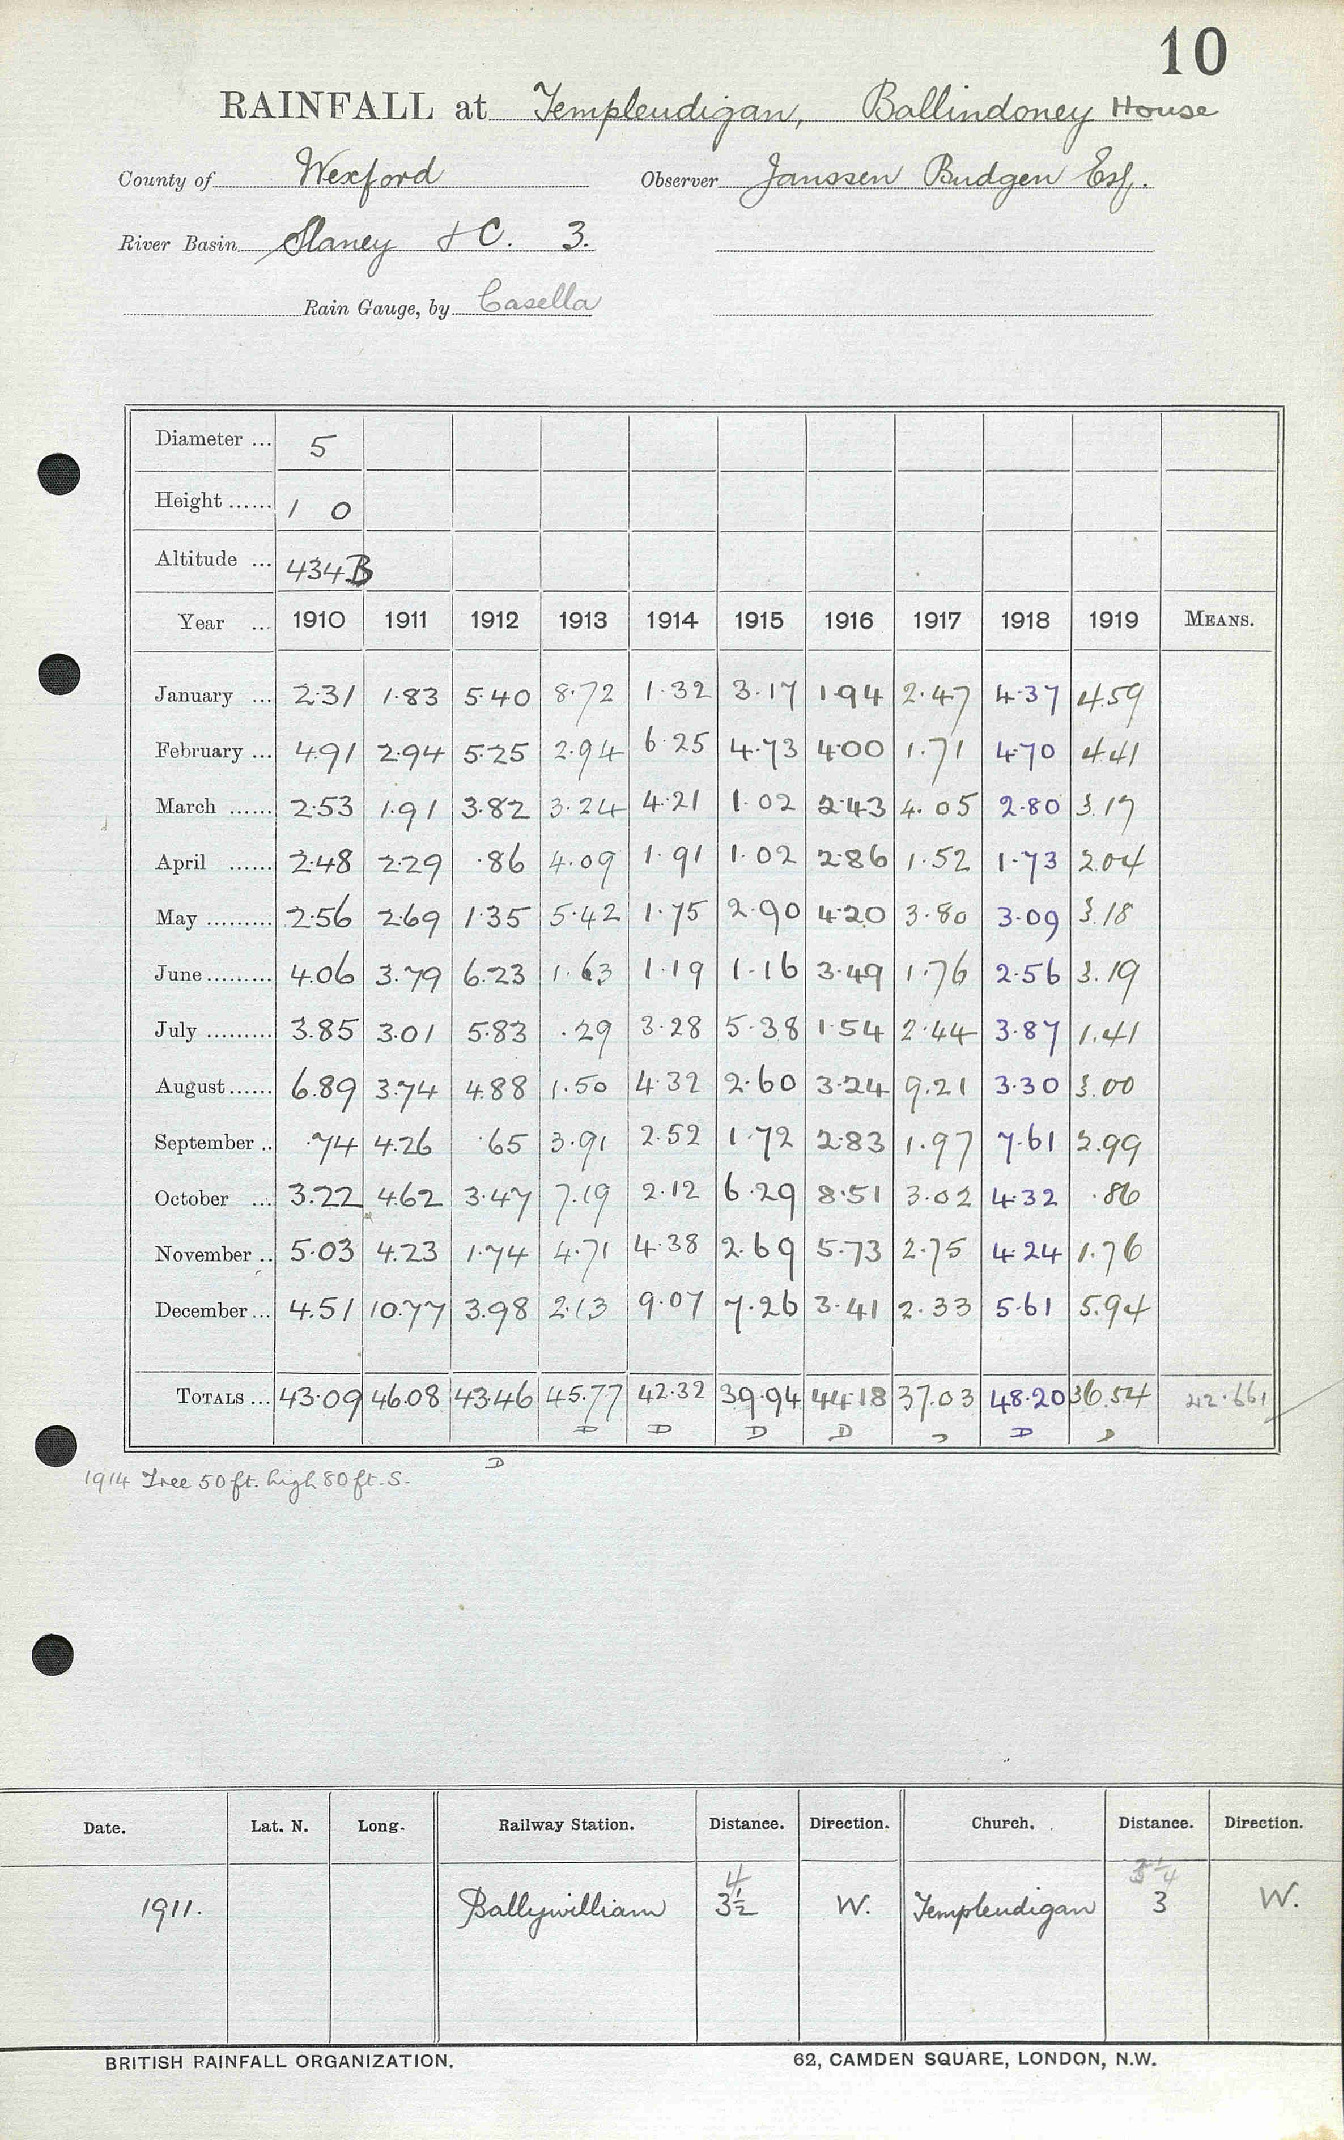 10
RAINFALL at Templeudigan, Ballindoney House
County of Wexford Observer Janssen Budgen Esq.
River Basin Slaney & C. 3.
Rain Gauge, by Casella
Diameter ... 5
Height ...... 1 0
Altitude ... 434 B
Year ... 1910 1911 1912 1913 1914 1915 1916 1917 1918 1919 MEANS.
January ... 2.31 1.83 5.40 8.72 1.32 3.17 1.94 2.47 4.37 4.59
February ... 4.91 2.94 5.25 2.94 6.25 4.73 4.00 1.71 4.70 4.41
March ...... 2.53 1.91 3.82 3.24 4.21 1.02 2.43 4.05 2.80 3.17
April ...... 2.48 2.29 .86 4.09 1.91 1.02 2.86 1.52 1.73 2.04
May ......... 2.56 2.69 1.35 5.42 1.75 2.90 4.20 3.80 3.09 3.18
June ......... 4.06 3.79 6.23 1.63 1.19 1.16 3.49 1.76 2.56 3.19
July ......... 3.85 3.01 5.83 .29 3.28 5.38 1.54 2.44 3.87 1.41
August ...... 6.89 3.74 4.88 1.50 4.32 2.60 3.24 9.21 3.30 3.00
September .. .74 4.26 .65 3.91 2.52 1.72 2.83 1.97 7.61 2.99
October ... 3.22 4.62 3.47 7.19 2.12 6.29 8.51 3.02 4.32 .86
November .. 5.03 4.23 1.74 4.71 4.38 2.69 5.73 2.75 4.24 1.76
December ... 4.51 10.77 3.98 2.13 9.07 7.26 3.41 2.33 5.61 5.94
TOTALS ... 43.09 46.08 43.46 45.77 42.32 39.94 44.18 37.03 48.20 36.54 42.661
D D D D D D D
D
1914 Tree 50 ft. high 80 ft. S.
Date. Lat. N. Long. Railway Station. Distance. Direction. Church. Distance. Direction.
4 3 1/4
1911. Ballywilliam 3½ W. Templeudigan 3 W.
BRITISH RAINFALL ORGANIZATION. 62, CAMDEN SQUARE, LONDON, N.W.